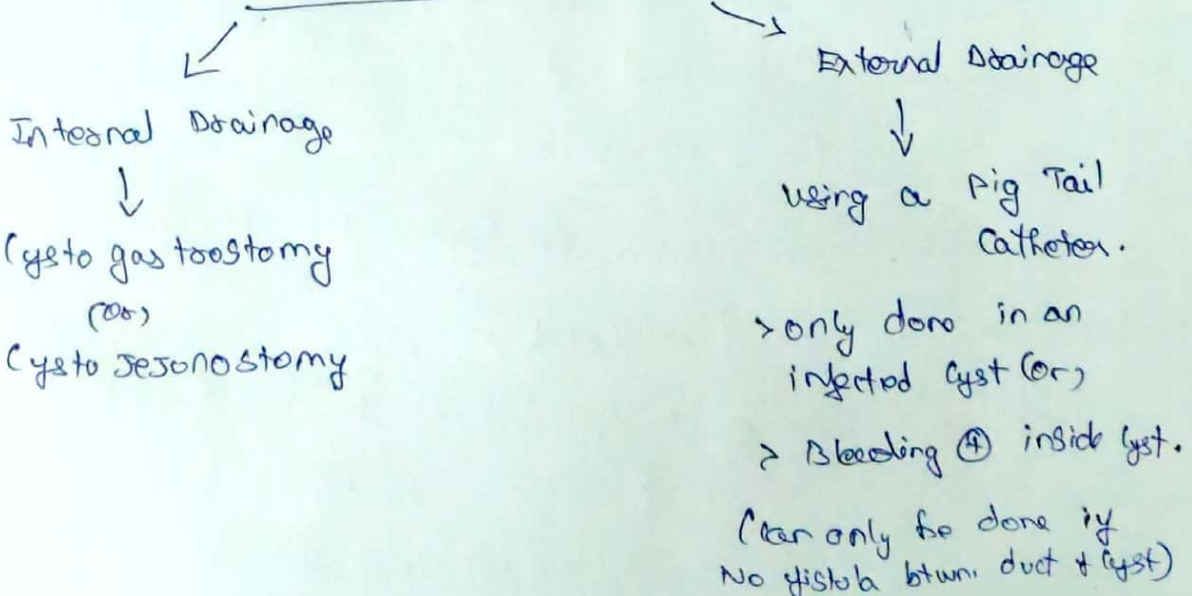 Internal Drainage
Cysto gastrostomy
(Or)
Cysto Jejonostomy
External Drainage
Using a Pig Tail
Catheter.
> only done in an
infected Cyst (or)
> Bleeding ⊕ inside Cyst.
(Can only be done if
No fistula btwn. duct & Cyst)